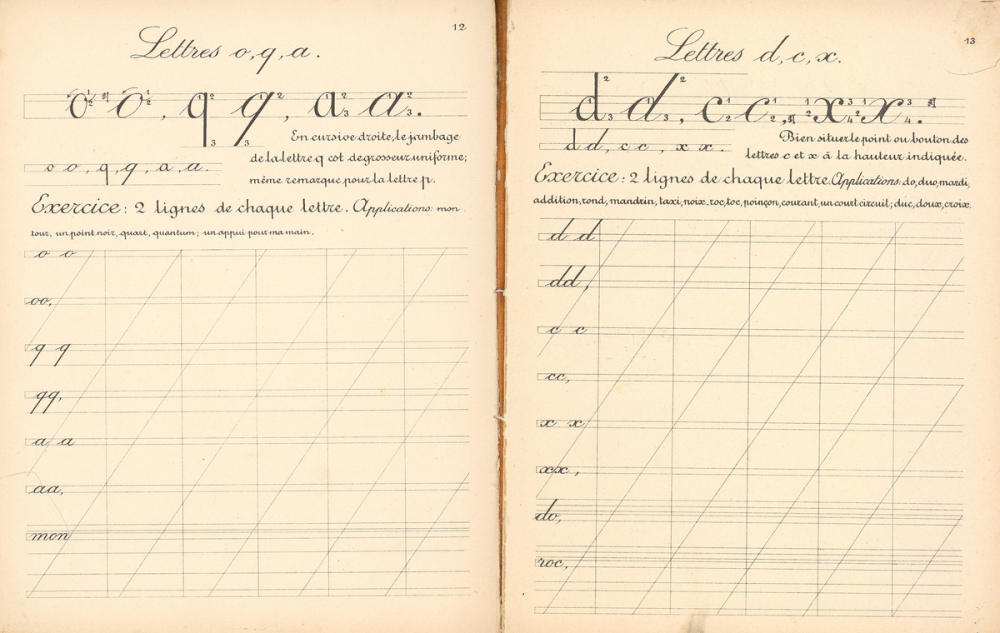 12
Lettres o, q, a.
o o, q q, a a.
En cursive droite, le jambage
de la lettre q est de grosseur uniforme;
même remarque pour la lettre p.
o o, q, q, a, a.
Exercice: 2 lignes de chaque lettre. Applications: mon
tour, un point noir, quart, quantum; un appui pour ma main.
o o
oo,
q q
qq,
a a
aa,
mon
13
Lettres d, c, x.
d d, c c, x x.
Bien situer le point ou bouton des
lettres c et x à la hauteur indiquée.
d d, c c, x x.
Exercice: 2 lignes de chaque lettre. Applications: do, duo, mardi,
addition, rond, mandrin, taxi, noix, roc, toc, poinçon, courant, un court circuit; duc, doux, croix.
d d
dd,
c c
cc,
x x
xx,
do,
roc,